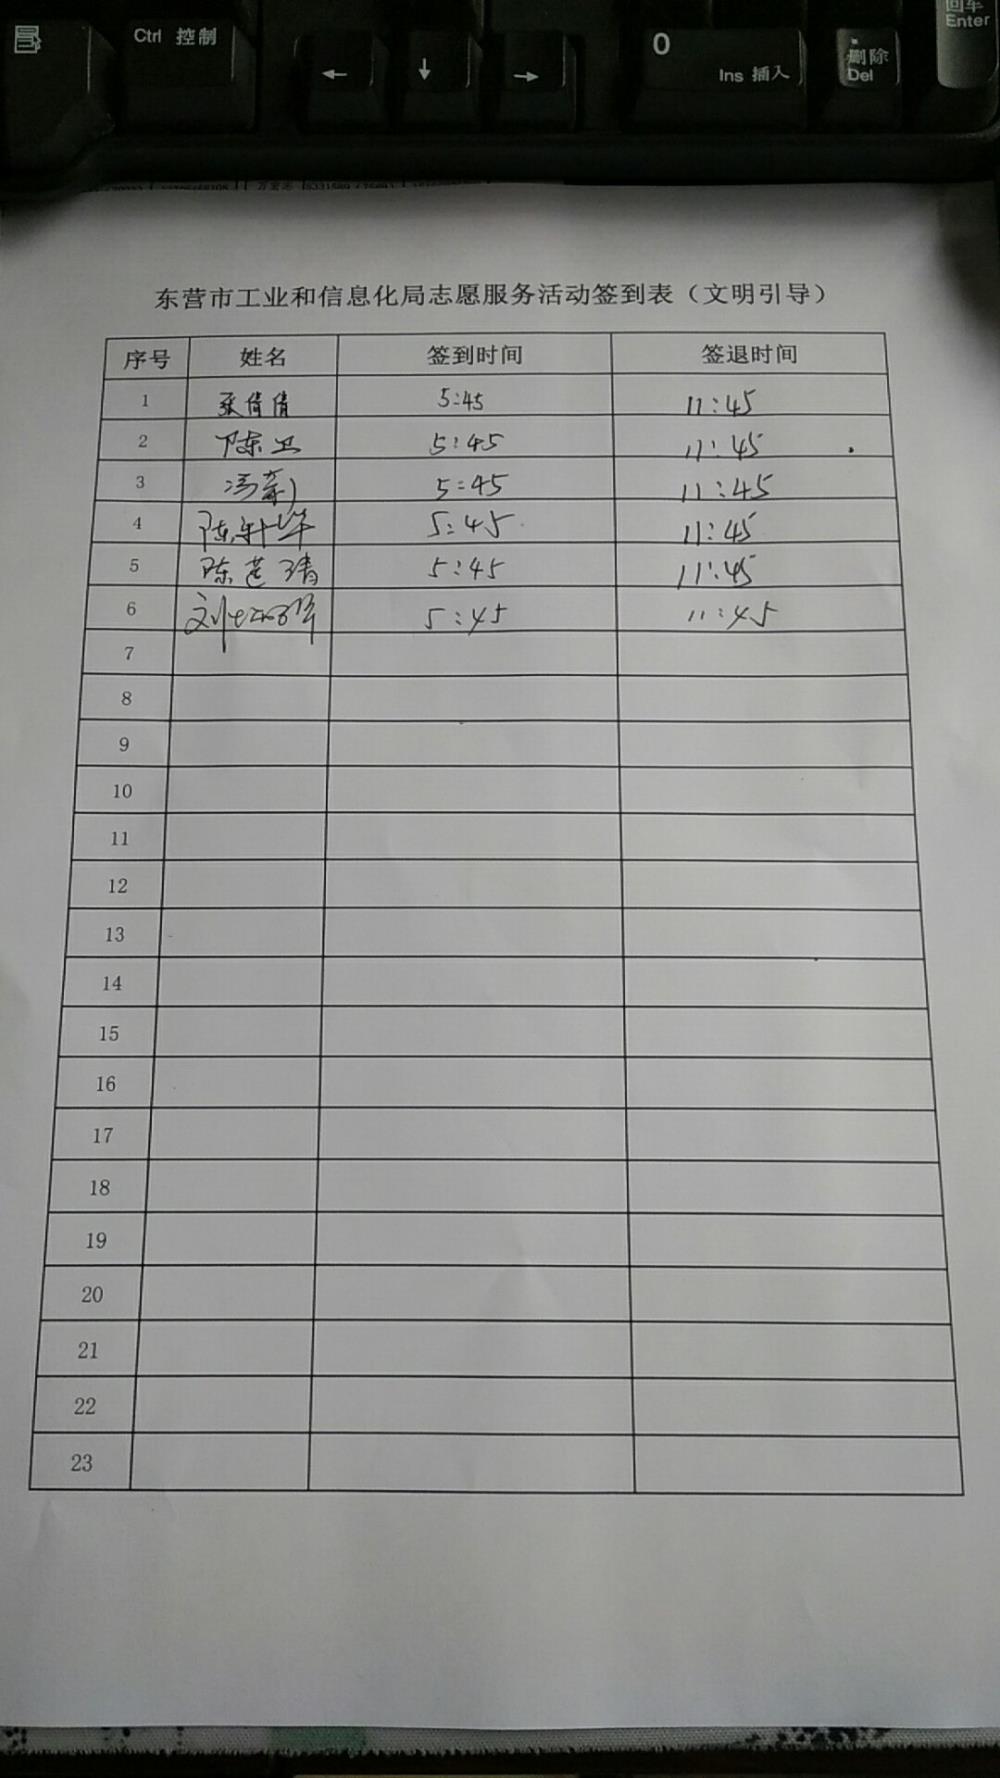 Ctrl 控制
← ↓ →
0
Ins 插入
删除
Del
回车
Enter
东营市工业和信息化局志愿服务活动签到表（文明引导）
序号 姓名 签到时间 签退时间
1 张倩倩 5:45 11:45
2 陈卫 5:45 11:45
3 5:45 11:45
4 5:45 11:45
5 5:45 11:45
6 5:45 11:45
7
8
9
10
11
12
13
14
15
16
17
18
19
20
21
22
23